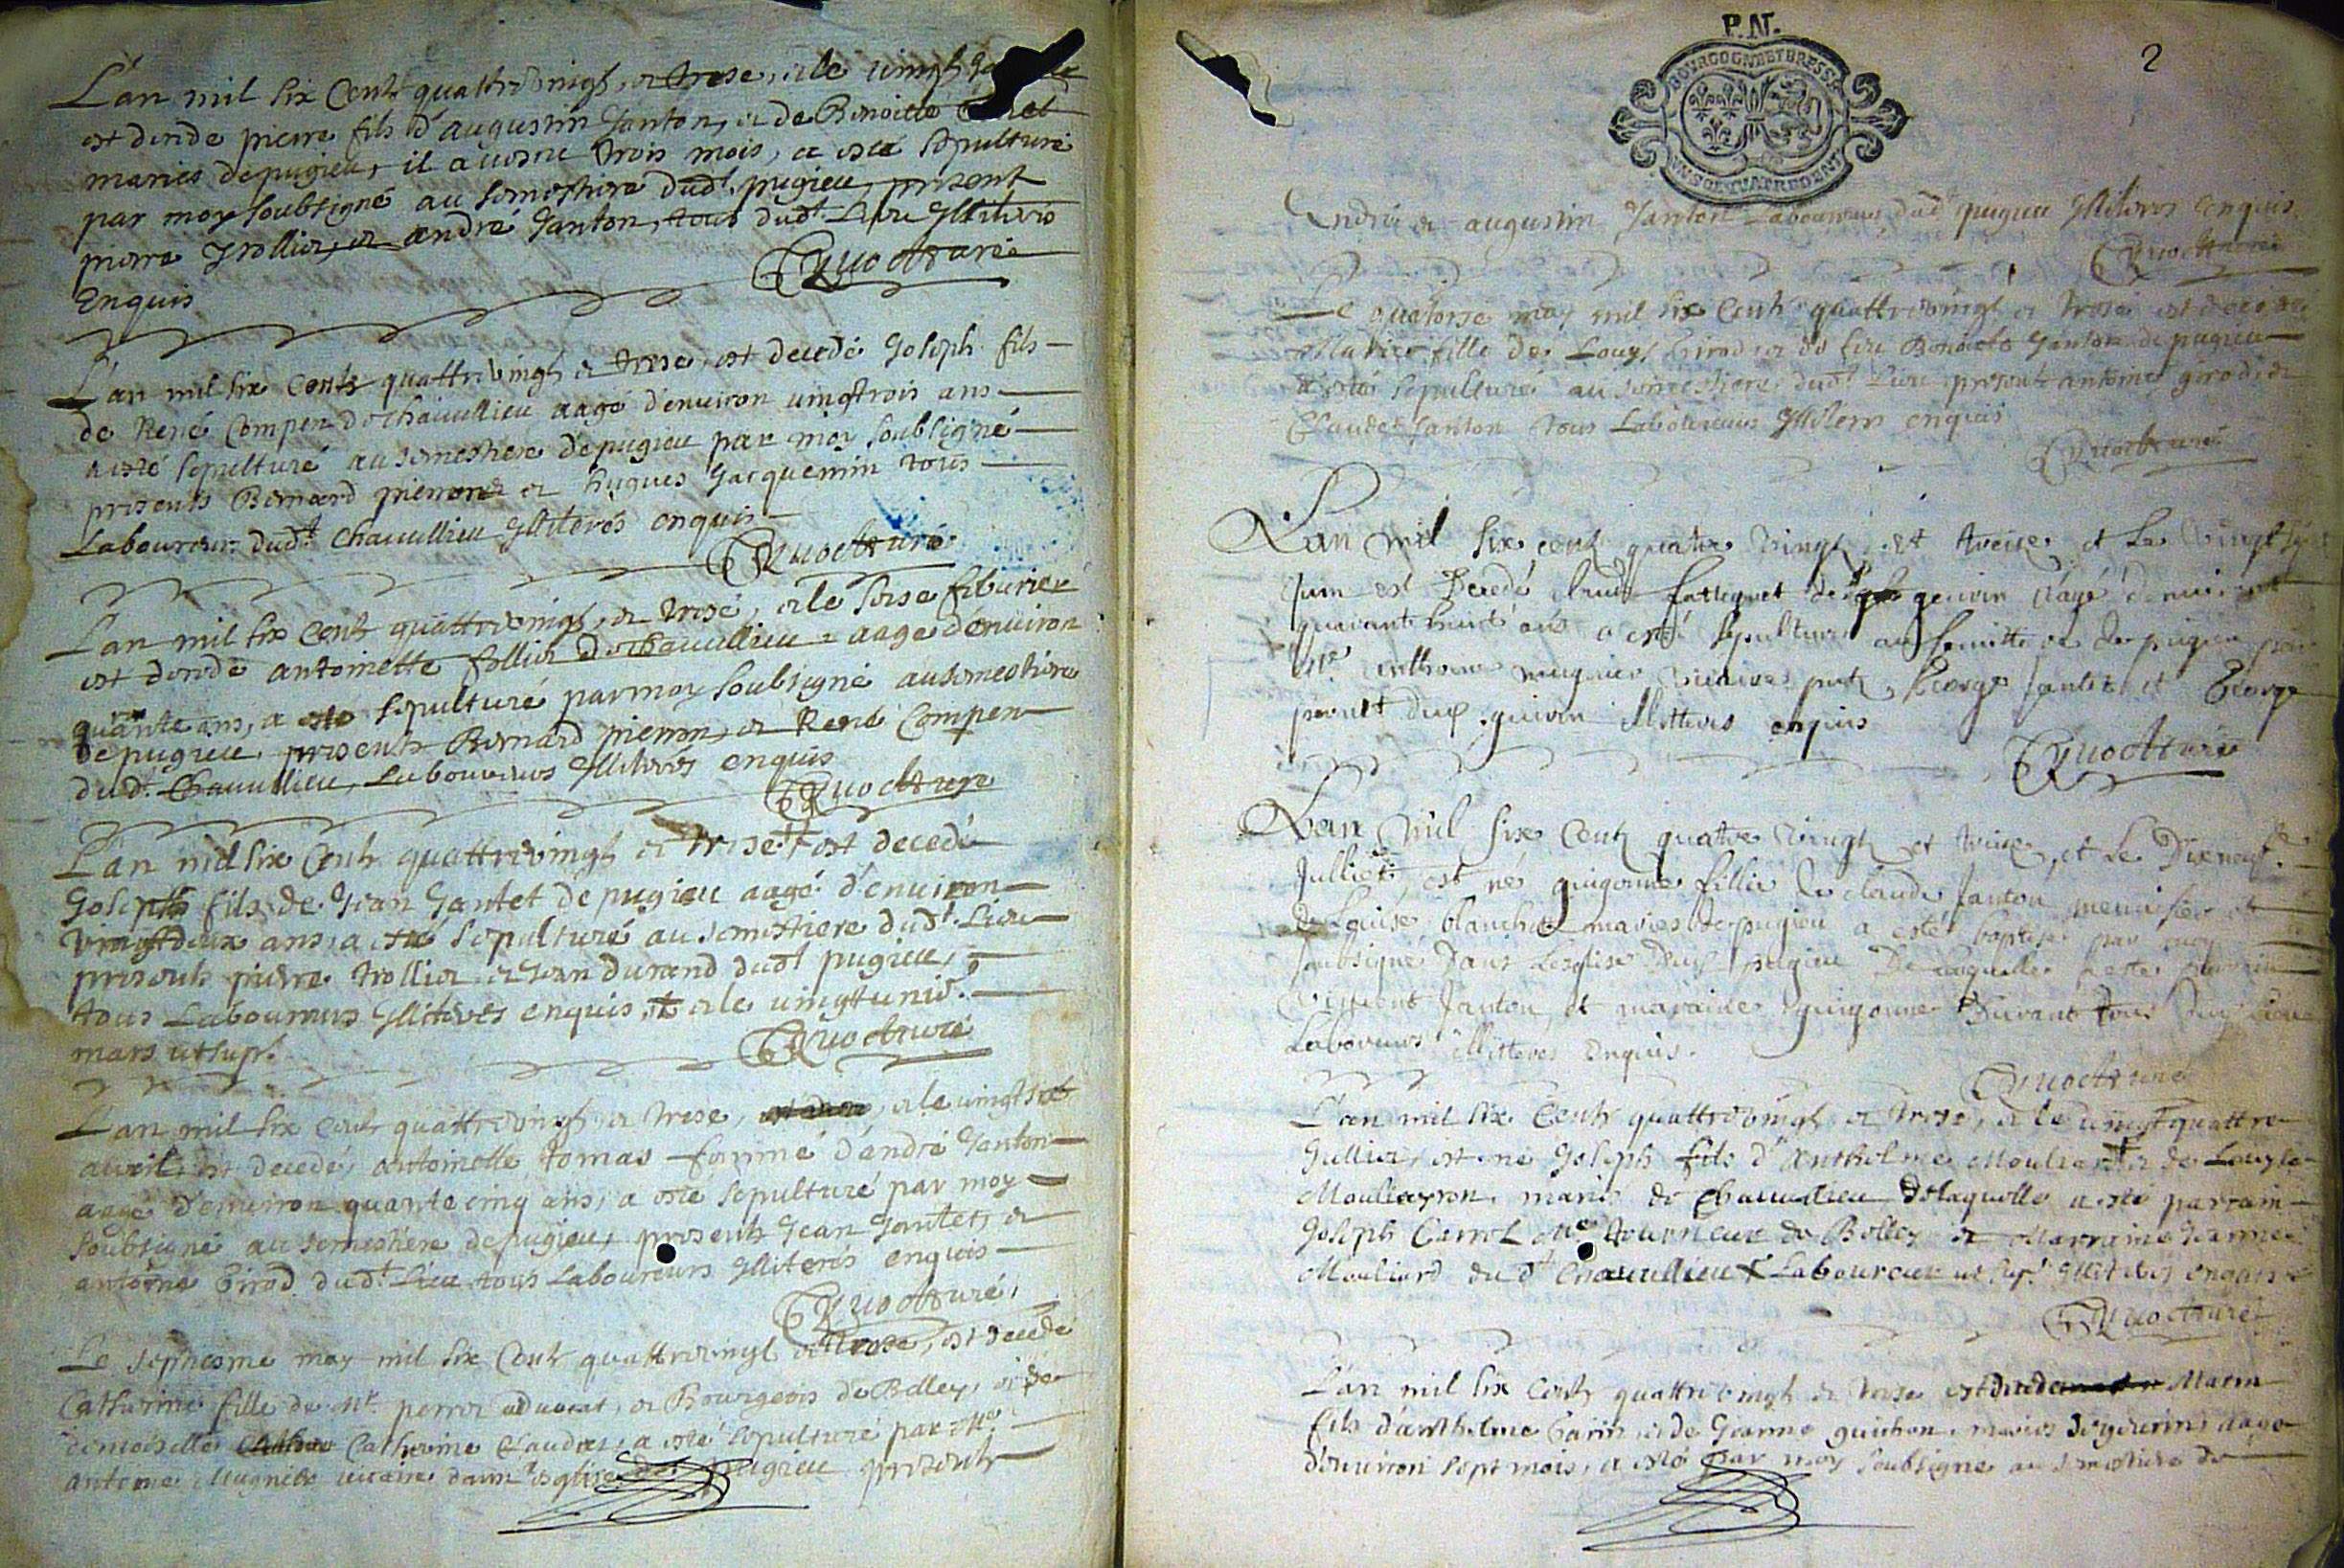 L'an mil six Centz quattrevingt, et trese, et le vingt
est decede pierre fils d'augustin Janton, et de Benoitte
maries de pugieu, il a vescu trois mois, a esté sepulturé
par moy soubsigné au semestiere dudt. pugieu, present
pierre Trollier, et andré Janton, tous dudt. Lieu Illiterés
Enquis
Quocturé
L'an mil six Centz quattrevingt et trese, est decedé Joseph fils
de René Compen de Chavullieu aagé d'environ vingttrois ans
a esté sepulturé au semestiere de pugieu par moy soubsigné
presents Bernard pierron et hugues Jacquemin tous
Laboureurs dudt. Chavullieu Illiterés enquis
Quocturé
L'an mil six Centz quattrevingt, et trese, et le seise feburier
est decedé antoinette follier de Chavullieu aagé d'environ
quarante ans, a esté sepulturé par moy soubsigné au semestiere
de pugieu, presents Bernard pierron, et René Compen
dudt. Chavullieu, Laboureurs Illiterés enquis
Quocturé
L'an mil six Centz quattrevingt et trese + est decedé
Joseph fils de Jean Jantet de pugieu aagé d'environ
vingtdeux ans, a esté sepulturé au semestiere dudt. Lieu
presents pierre trollier et Jean durand dudt pugieu,
tous Laboureurs Illiterés enquis, + et le vingttunie.
mars ut supr.
Quocturé
L'an mil six Centz quattrevingt et trese, et le vingt six
avril, est decedé, antoinette tomas femme d'endré Janton
aagé d'environ quarante cinq ans, a esté sepulturé par moy
soubsigné au semestiere de pugieu, presents Jean Jantet, et
antoine Girod dudt. Lieu tous Laboureurs Illiterés enquis
Quocturé
Le septiesme may mil six Centz quattrevingt et trese, est decedé
Catherine fille de Mr. perrot advocat, et Bourgeois de Belley, et de
demoiselle Catherine Claudet, a esté sepulturé par Mre.
antoine Mugnier vicaire dans l'esglise de pugieu presents
P.N.
2
BOURGOGNE ET BRESSE
Endré et augustin Janton Laboureurs dudt pugieu Illiterés Enquis
Quocturé
Le quatorse may mil six Centz quattrevingt et trese est decedée
fille de Louys Girod et de feu Benoicte Janton de pugieu
a esté sepulturé au semestiere dudt Lieu presents antoine girod, et
Claude Janton tous Laboureurs Illiterés enquis
Quocturé
Lan mil six centz quatre vingt et treise et le vingt
Juin est Decedé de geuvrin aagé d'environ
quarante huict ans a esté sepulturé au semittere de pugieu par
Mre Anthoine mugnier vicaire pntz George Jantet et George
dud. geuvrin Illitteres enquis
Quocturé
Lan mil six Centz quatre vingt et treise, et le Dixneufe.
Julliet, est né guigonne fillie de claude Janton menuisier et
de Louise blanchet maries de pugieu a esté baptisé par moy
soubsigné dans Lesglise dud. pugieu De laquelle a esté parrain
Clement Janton et maraine guigonne Durand tous dud. Lieu
Laboureurs illitteres enquis.
Quocturé
L'an mil six Centz quattrevingt et trese, et le vingt quattre
Jullier, est né Joseph fils d'anthelme et de Louyse
Moulieyron, mariés de Chavullieu delaquelle a esté parrain
Joseph Carrel Me. tourneur de Belley et Marraine Jeanne
Mouliard dudt Chavullieu Laboureur ut supr. Illiterés enquis
Quocturé
L'an mil six Centz quattrevingt et trese est decedé Marin
fils d'anthelme Carin et de Jeanne guichon, mariés de geuvrin, aagé
d'environ sept mois, a esté par moy soubsigné au semestiere de